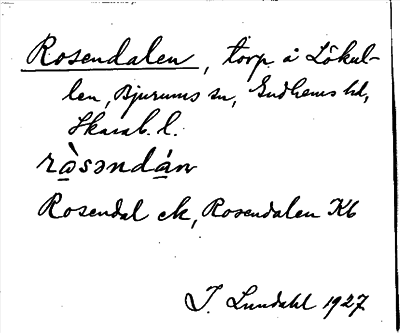 Rosendalen, torp å Lökul-
len, Bjurums sn, Gudhems hd,
Skarab. l.
rà̱səndá̱n
Rosendal ek, Rosendalen Kb
J. Lundahl 1927